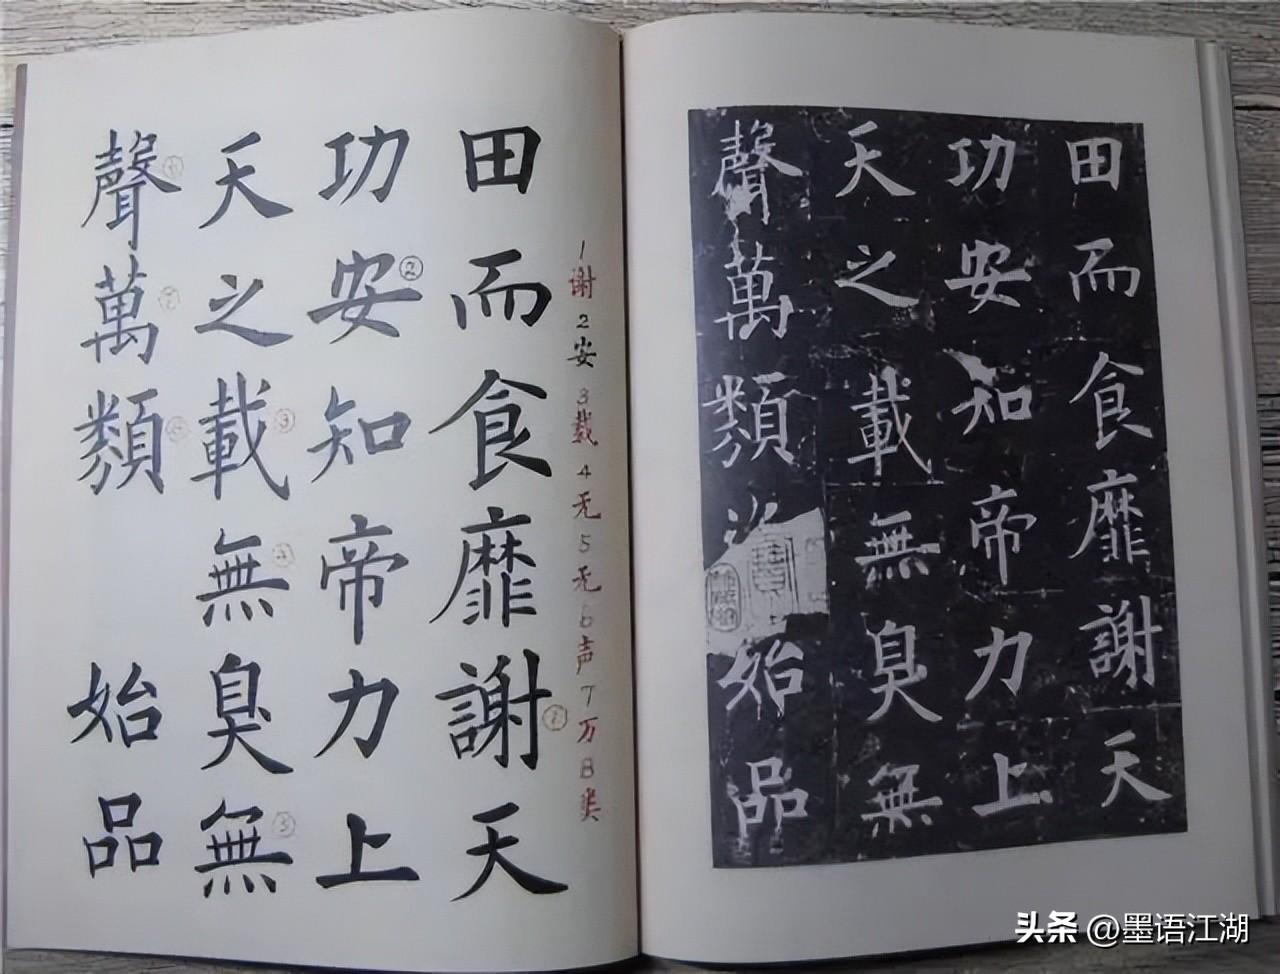 田而食靡謝天
功安知帝力上
天之載無臭無
聲萬類 始品
1谢 2安 3载 4无 5无 6声 7万 8类
田而食靡謝天
功安②知帝力上
天之載③無④臭無⑤
聲⑥萬⑦類 始品
头条 @墨语江湖